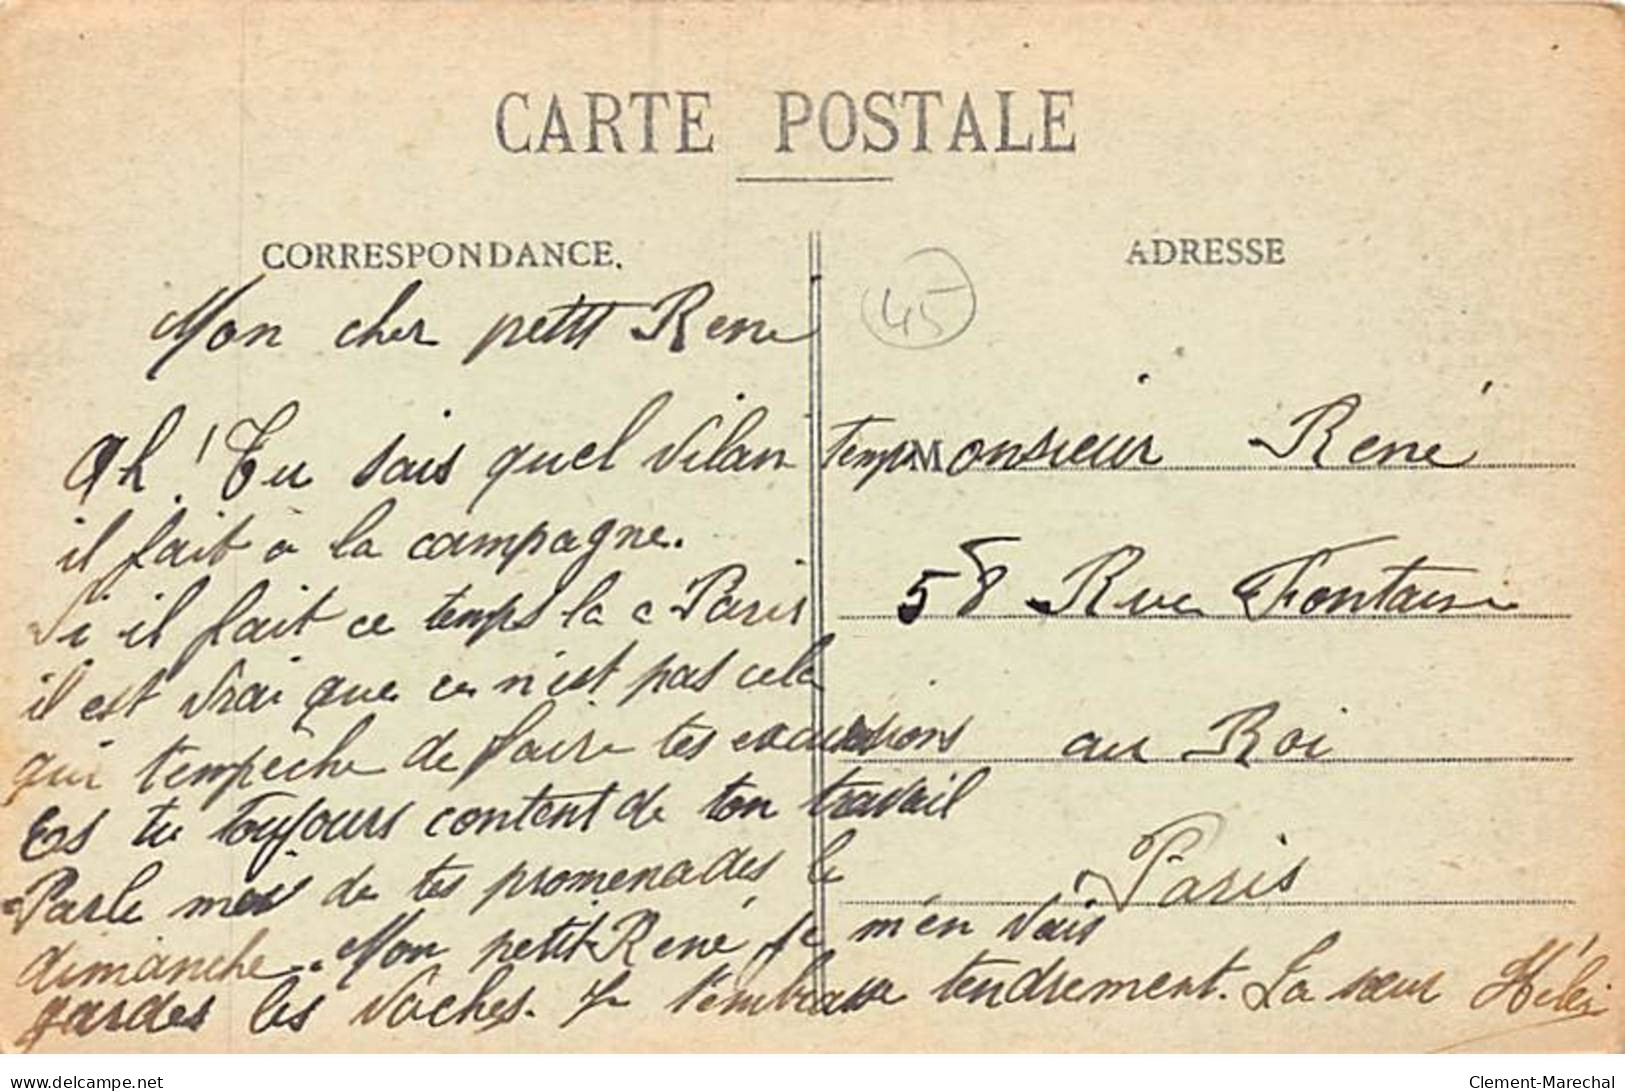 CARTE POSTALE
CORRESPONDANCE.
ADRESSE
45
Mon cher petit Rene
Ah! Tu sais quel vilain temps
il fait à la campagne.
Si il fait ce temps la a Paris
il est vrai que ce n'est pas cela
qui t'empêche de faire tes excursions
Es tu toujours content de ton travail
Parle moi de tes promenades le
dimanche. Mon petit René je m'en vais
garder les vaches. Je t'embrasse tendrement. Ta sœur
Monsieur René
58 Rue Fontaine
au Roi
Paris
delcampe.net
Clement-Marechal